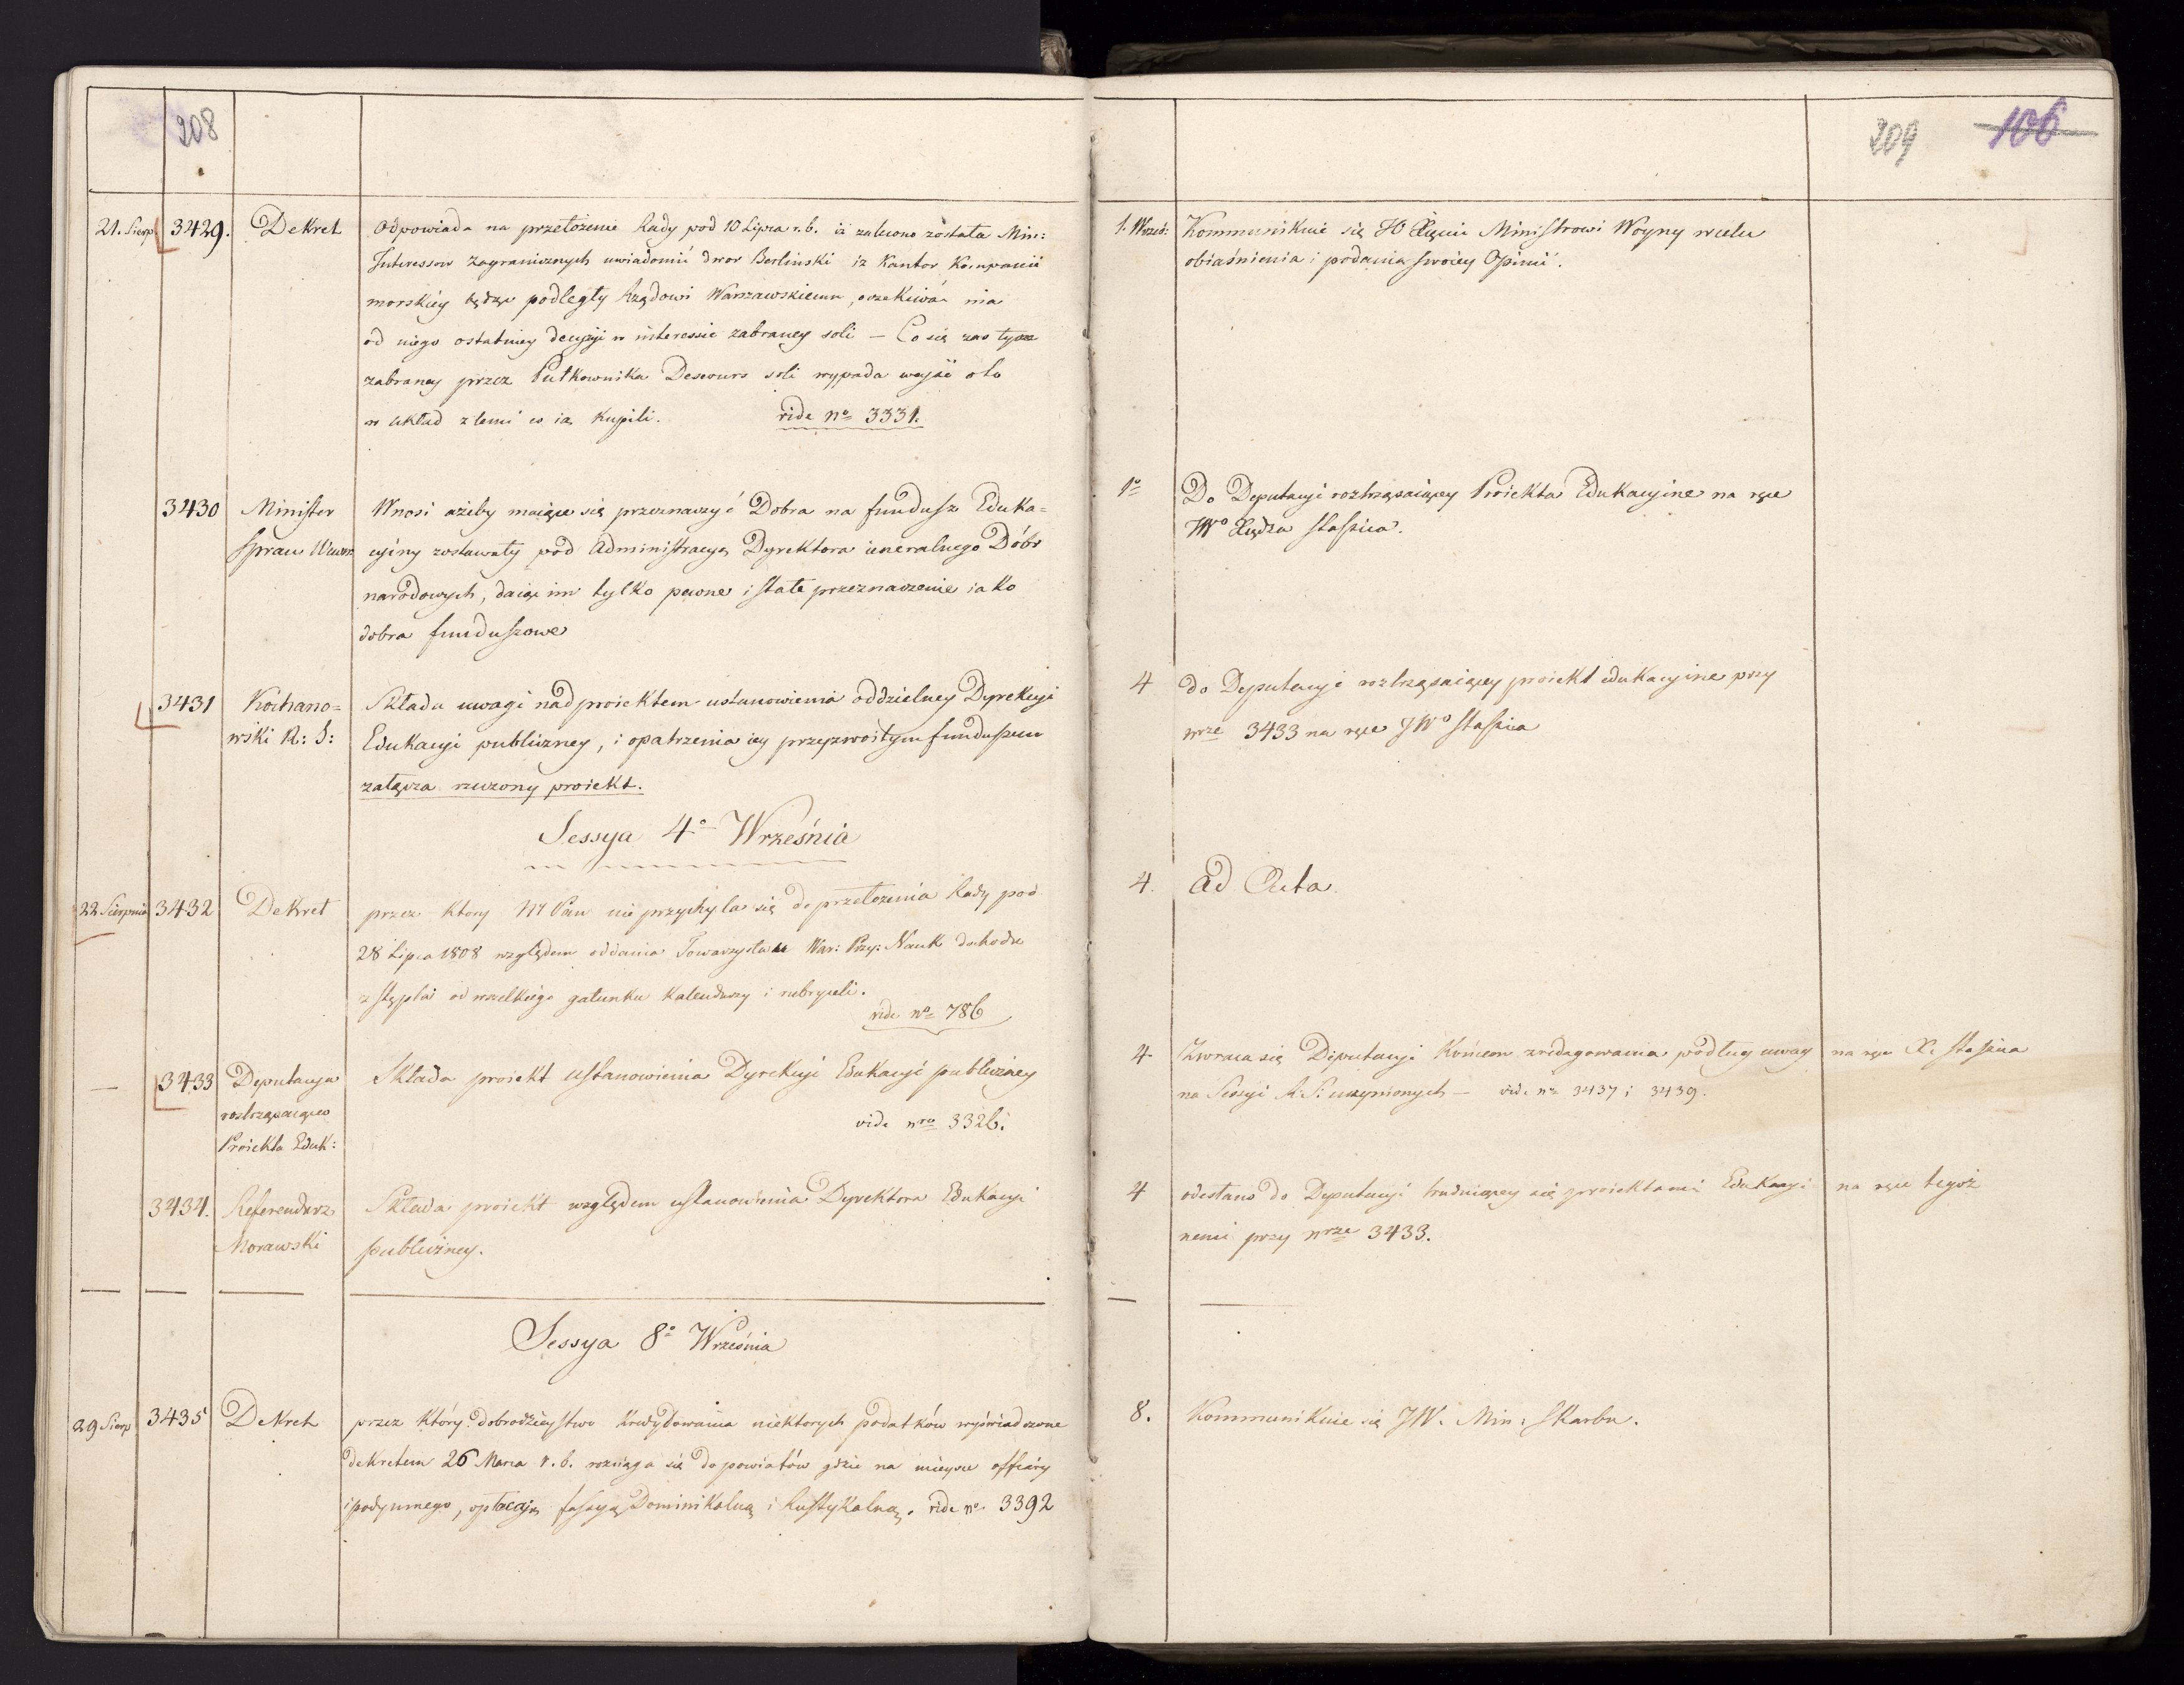 208
21. Sierp. 3429. Dekret Odpowiada na przełożenie Rady pod 10 Lipca r. b. iż zalecono zostało Min:
Interessow zagranicznych uwiadomić dwor Berlinski iż Kantor Kompanii
morskiey będąc podległy Rządowi Warszawskiemu, oczekiwać ma
od niego ostatniey decyzyi w interessie zabraney soli – Co się zas tycze
zabraney przez Pułkownika Descours soli wypada weyść oto
w układ z temi co ią kupili. vide No 3331.
3430 Minister Wnosi ażeby maiące się przeznaczyć Dobra na fundusz Eduka=
Spraw Wewn: cyiny zostawały pod Administracyą Dyrektora ieneralnego Dóbr
narodowych, daiąc im tylko pewne i stałe przeznaczenie iako
dobra funduszowe
3431 Kochano= Składa uwagi nad proiektem ustanowienia oddzielney Dyrekcyi
wski R: S: Edukacyi publiczney, i opatrzenia iey przyzwoitym funduszem
załącza rzeczony proiekt.
Sessya 4o Września
22 Sierpnia 3432 Dekret przez ktory NPan nie przychyla się do przełożenia Rady pod
28 Lipca 1808 względem oddania Towarzystwu War: Przy: Nauk dochodu
z stępla od wszelkiego gatunku Kalendarzy i rubrycelli.
vide no 786
— 3433 Deputacya Składa proiekt ustanowienia Dyrekcyi Edukacyi publiczney
roztrząsaiąca vide nro 3326.
Proiekta Eduk:
3434. Referendarz Składa proiekt względem ustanowienia Dyrektora Edukacyi
Morawski publiczney.
Sessya 8o Września
29 Sierp 3435 Dekret przez który dobrodzieystwo kredytowania niektorych podatków wyświadczone
dekretem 26 Marca r. b. rozciąga się do powiatów gdzie na mieysce offiary
i podymnego, opłacaią fassyą Dominikalną i Rustykalną. vide no 3392
209 106
1. Wrześ: Kommunikuie się JO Xięciu Ministrowi Woyny w celu
obiaśnienia i podania swoiey Opinii.
1o Do Deputacyi roztrząsaiącey Proiekta Edukacyine na ręce
JWo Xiędza Staszica.
4 do Deputacyi roztrząsaiącey proiekt edukacyine przy
nrze 3433 na ręce JWo Staszica
4. ad Acta.
4. Zwraca się Deputacyi końcem zredagowania podług uwag na ręce X. Staszica
na Sessyi R. S: uczynionych – vide no 3437 i 3439.
4 odesłano do Deputacyi trudniącey się proiektami Edukacyi na ręce tegoż
nemi przy nrze 3433.
8. Kommunikuie się JW. Min: Skarbu.